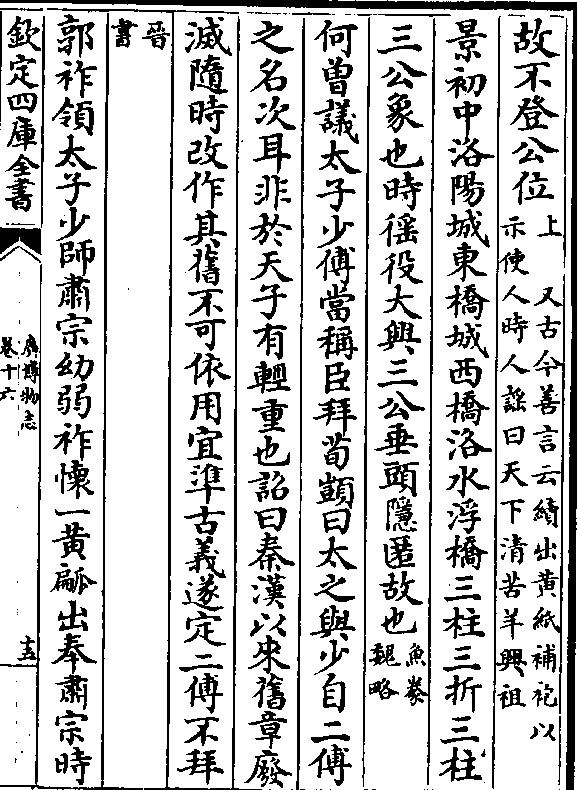 故不登公位上 又古今善言云續出黄紙補袍以
示使人時人謡曰天下清苦羊興祖
景初中洛陽城東橋城西橋洛水浮橋三柱三折三柱
三公象也時徭役大興三公垂頭隱匿故也魚豢
魏略
何曽議太子少傅當稱臣拜荀顗曰太之與少自二傅
之名次耳非於天子有輕重也詔曰秦漢以來舊章廢
滅隨時改作其舊不可依用宜準古義遂定二傅不拜
晉
書
郭祚領太子少師肅宗幼弱祚懐一黄㼐出奉肅宗時
欽定四庫全書
廣博物志
卷十六
十五